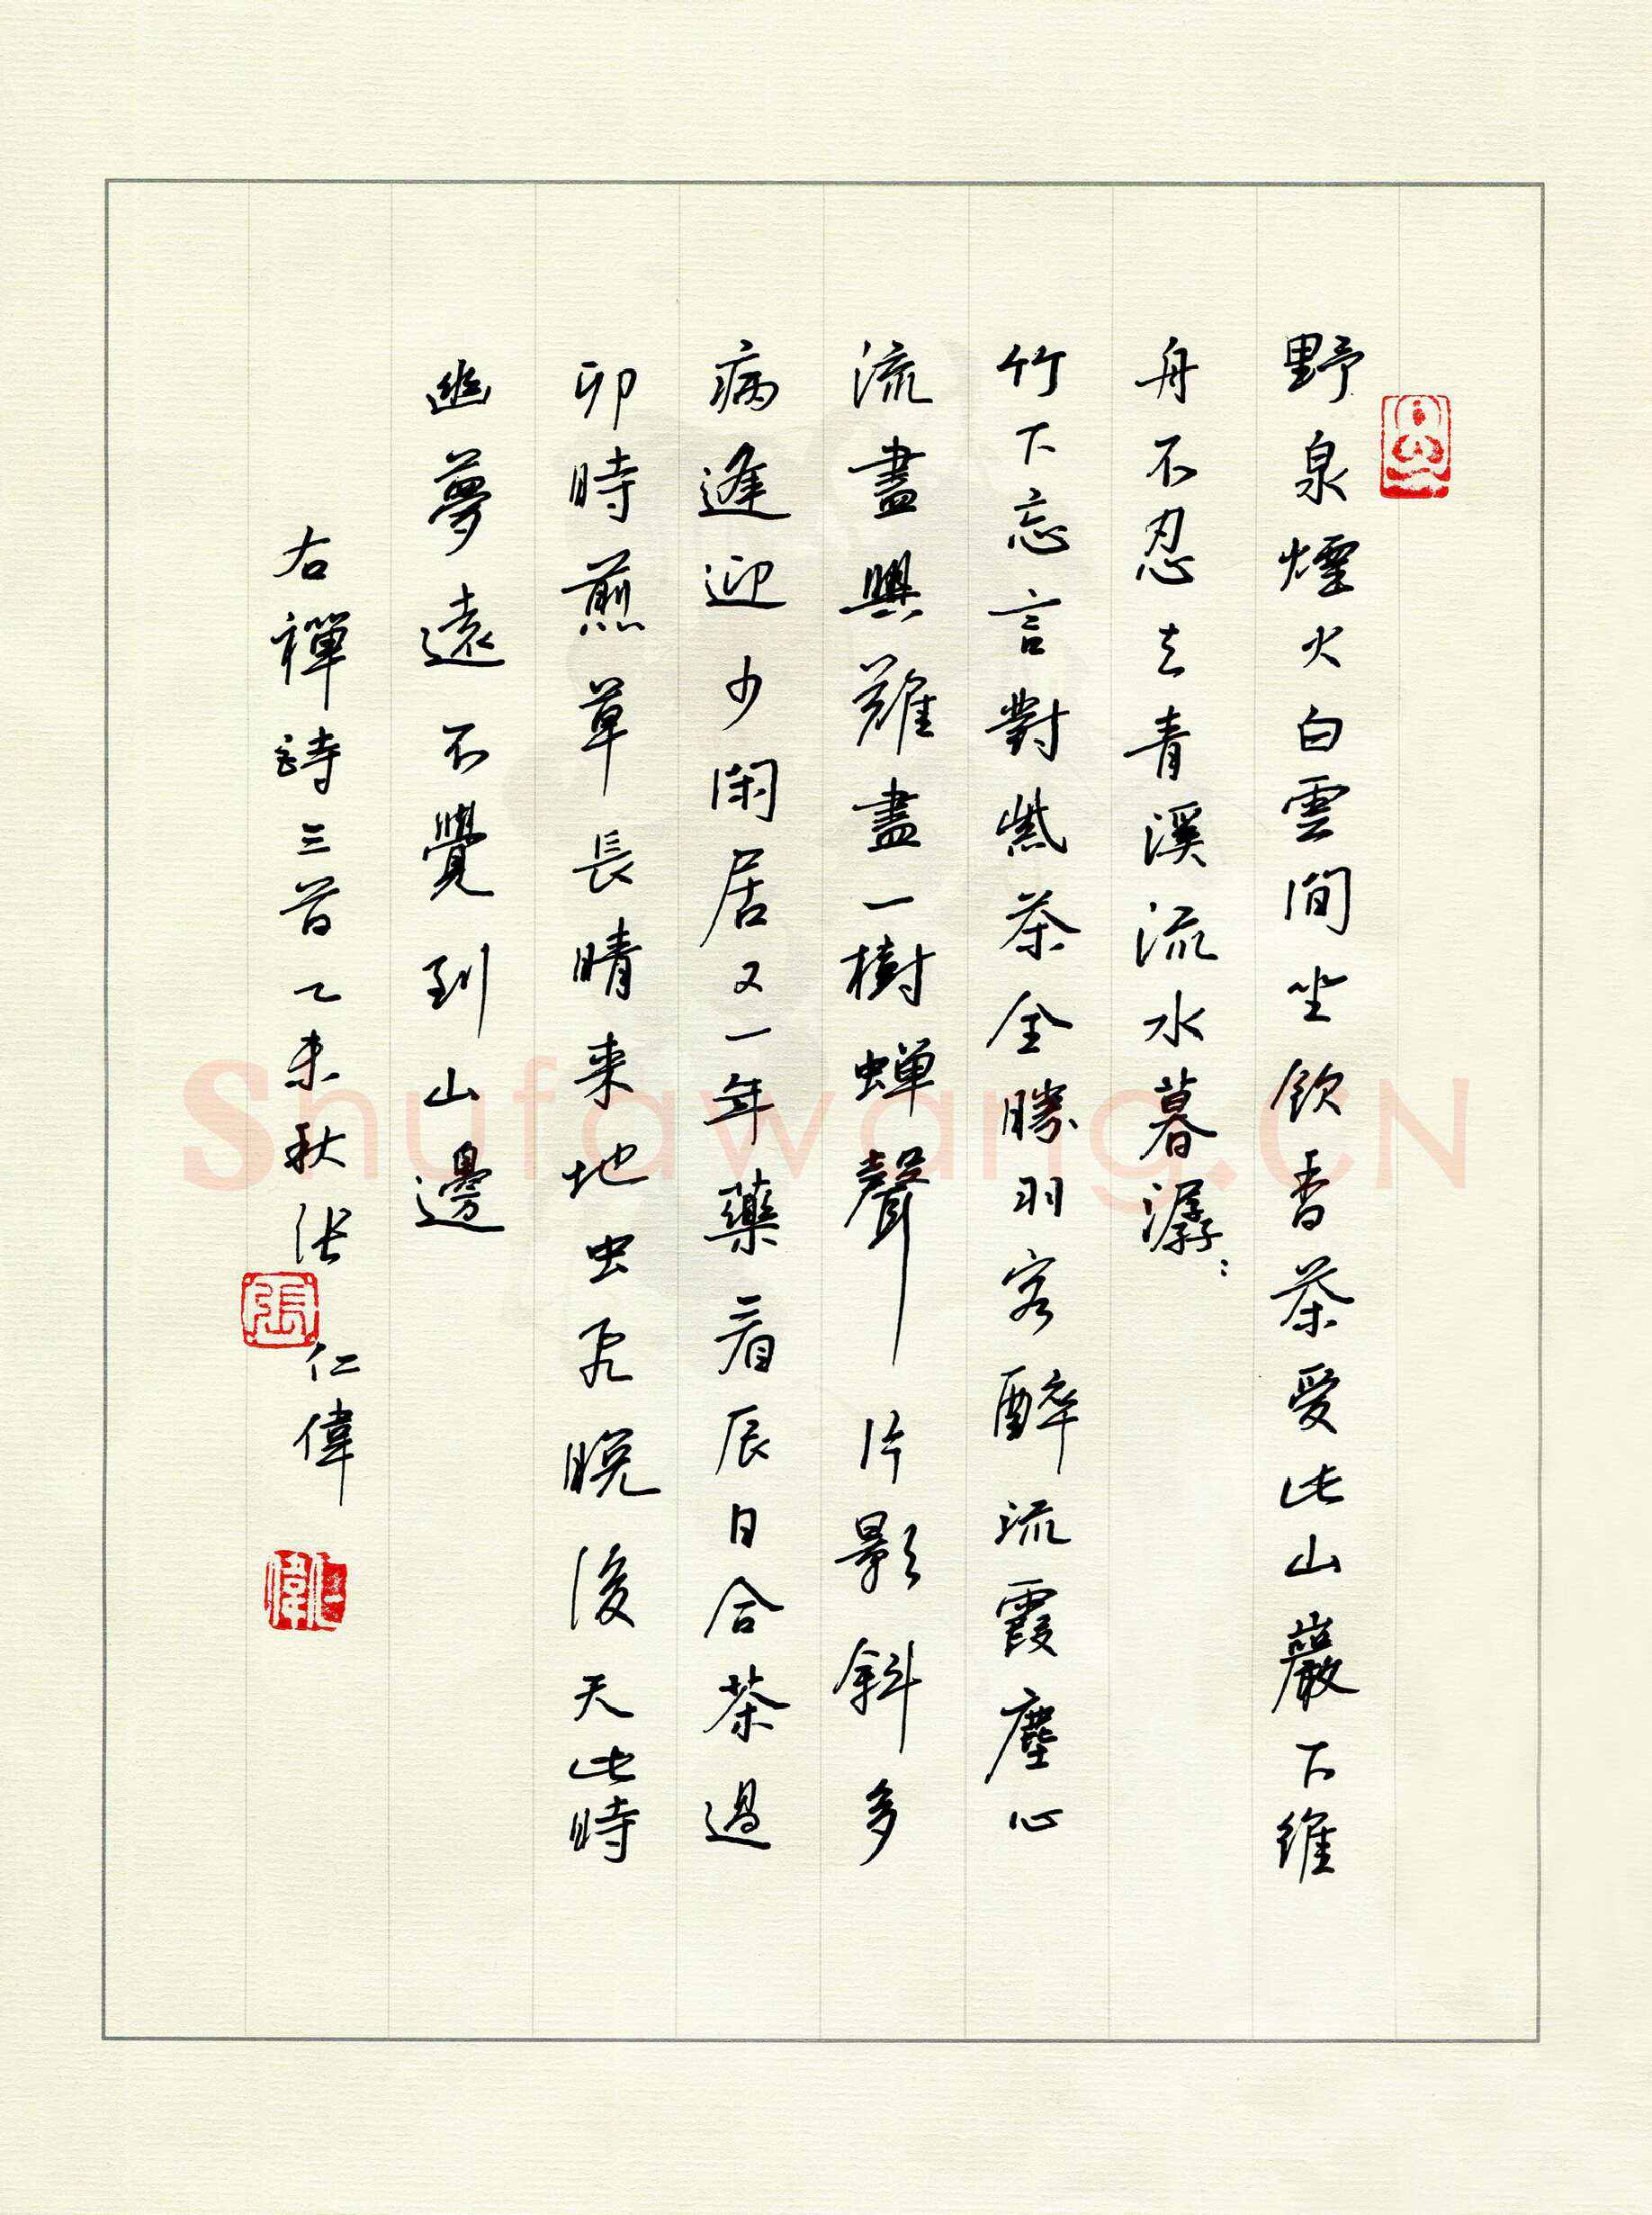 野泉煙火白雲間坐飲香茶愛此山巖下維
舟不忍去青溪流水暮潺:
竹下忘言對紫茶全勝羽客醉流霞塵心
流盡興難盡一樹蝉聲片影斜多
病逢迎少閑居又一年藥看辰日合茶過
卯時煎草長晴来地虫飛晚後天此時
幽夢遠不覺到山邊
右禪詩三首乙未秋張仁偉
張
仁偉
Shufawang.CN